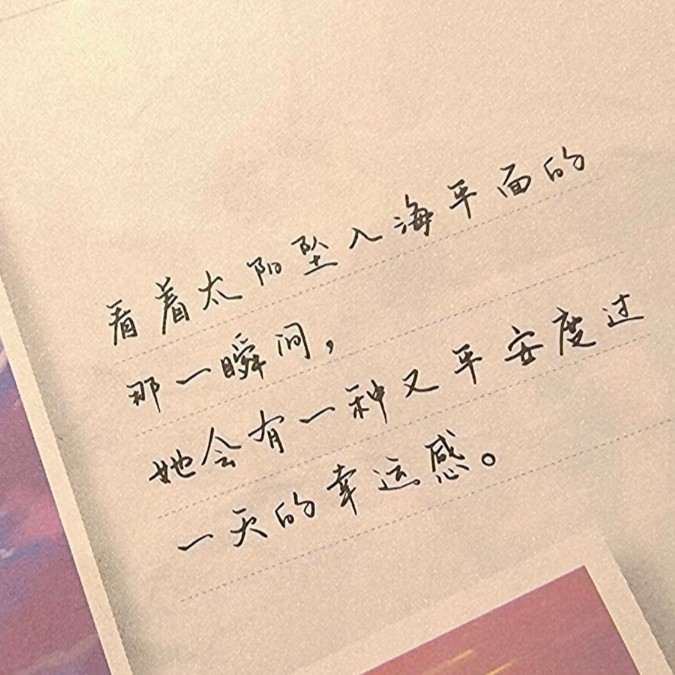 看着太阳坠入海平面的
那一瞬间，
她会有一种又平安度过
一天的幸运感。